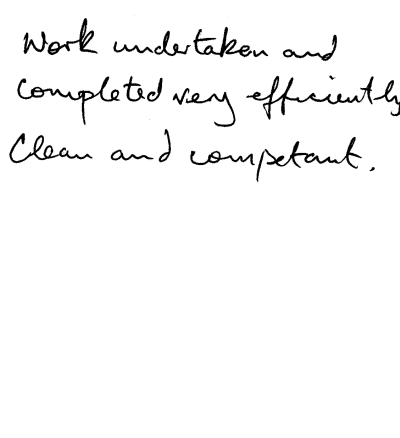 Work undertaken and
Completed very efficiently
Clean and competant.